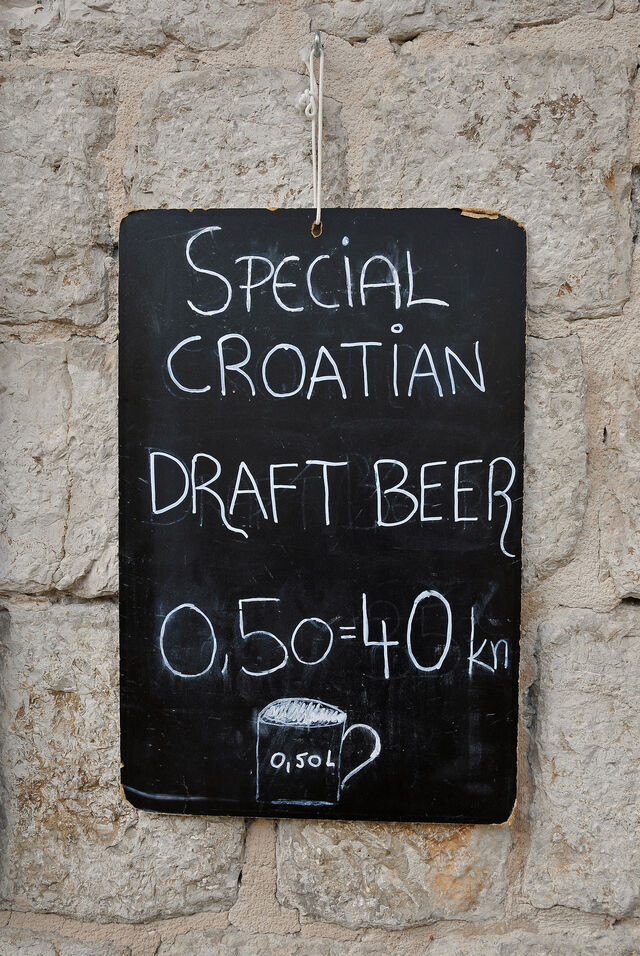 SPECIAL
CROATIAN
DRAFT BEER
0,50=40 kn
0,50L